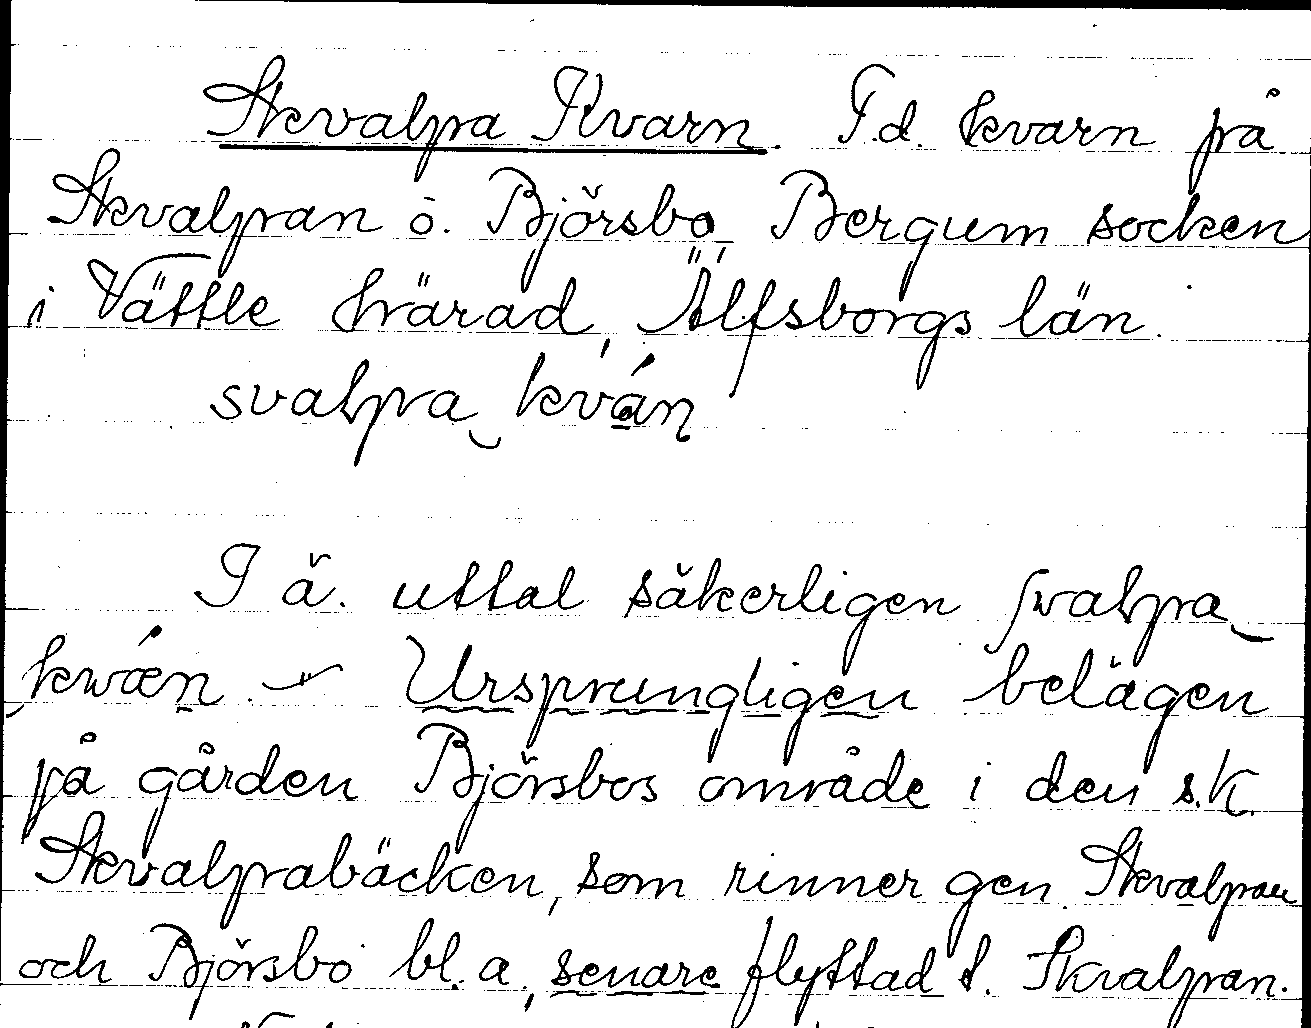 Skvalpa Kvarn. F.d. kvarn på
Skvalpan ö. Björsbo, Bergum socken
i Vättle härad, Älfsborgs län.
svalpa‿kván
I ä. uttal säkerligen ʃvalpa‿
kwǽn. – Ursprungligen belägen
på gården Björsbos område i den s.k.
Skvalpabäcken, som rinner gen. Skvalpan
och Björsbo bl.a., senare flyttad t. Skvalpan.